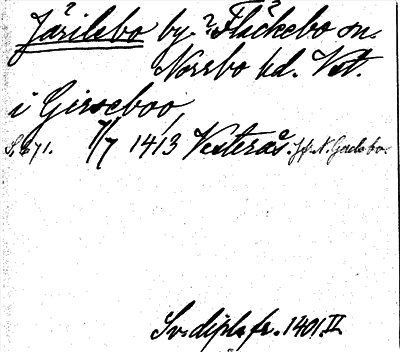 Järilebo by ? Fläckebo sn.
Norrbo hd. Vstm.
i Girseboo,
S. 671. 7/7 1413 Vesterås. Jfr N. Gerdsbo.
Sv. dipl. fr. 1401 II